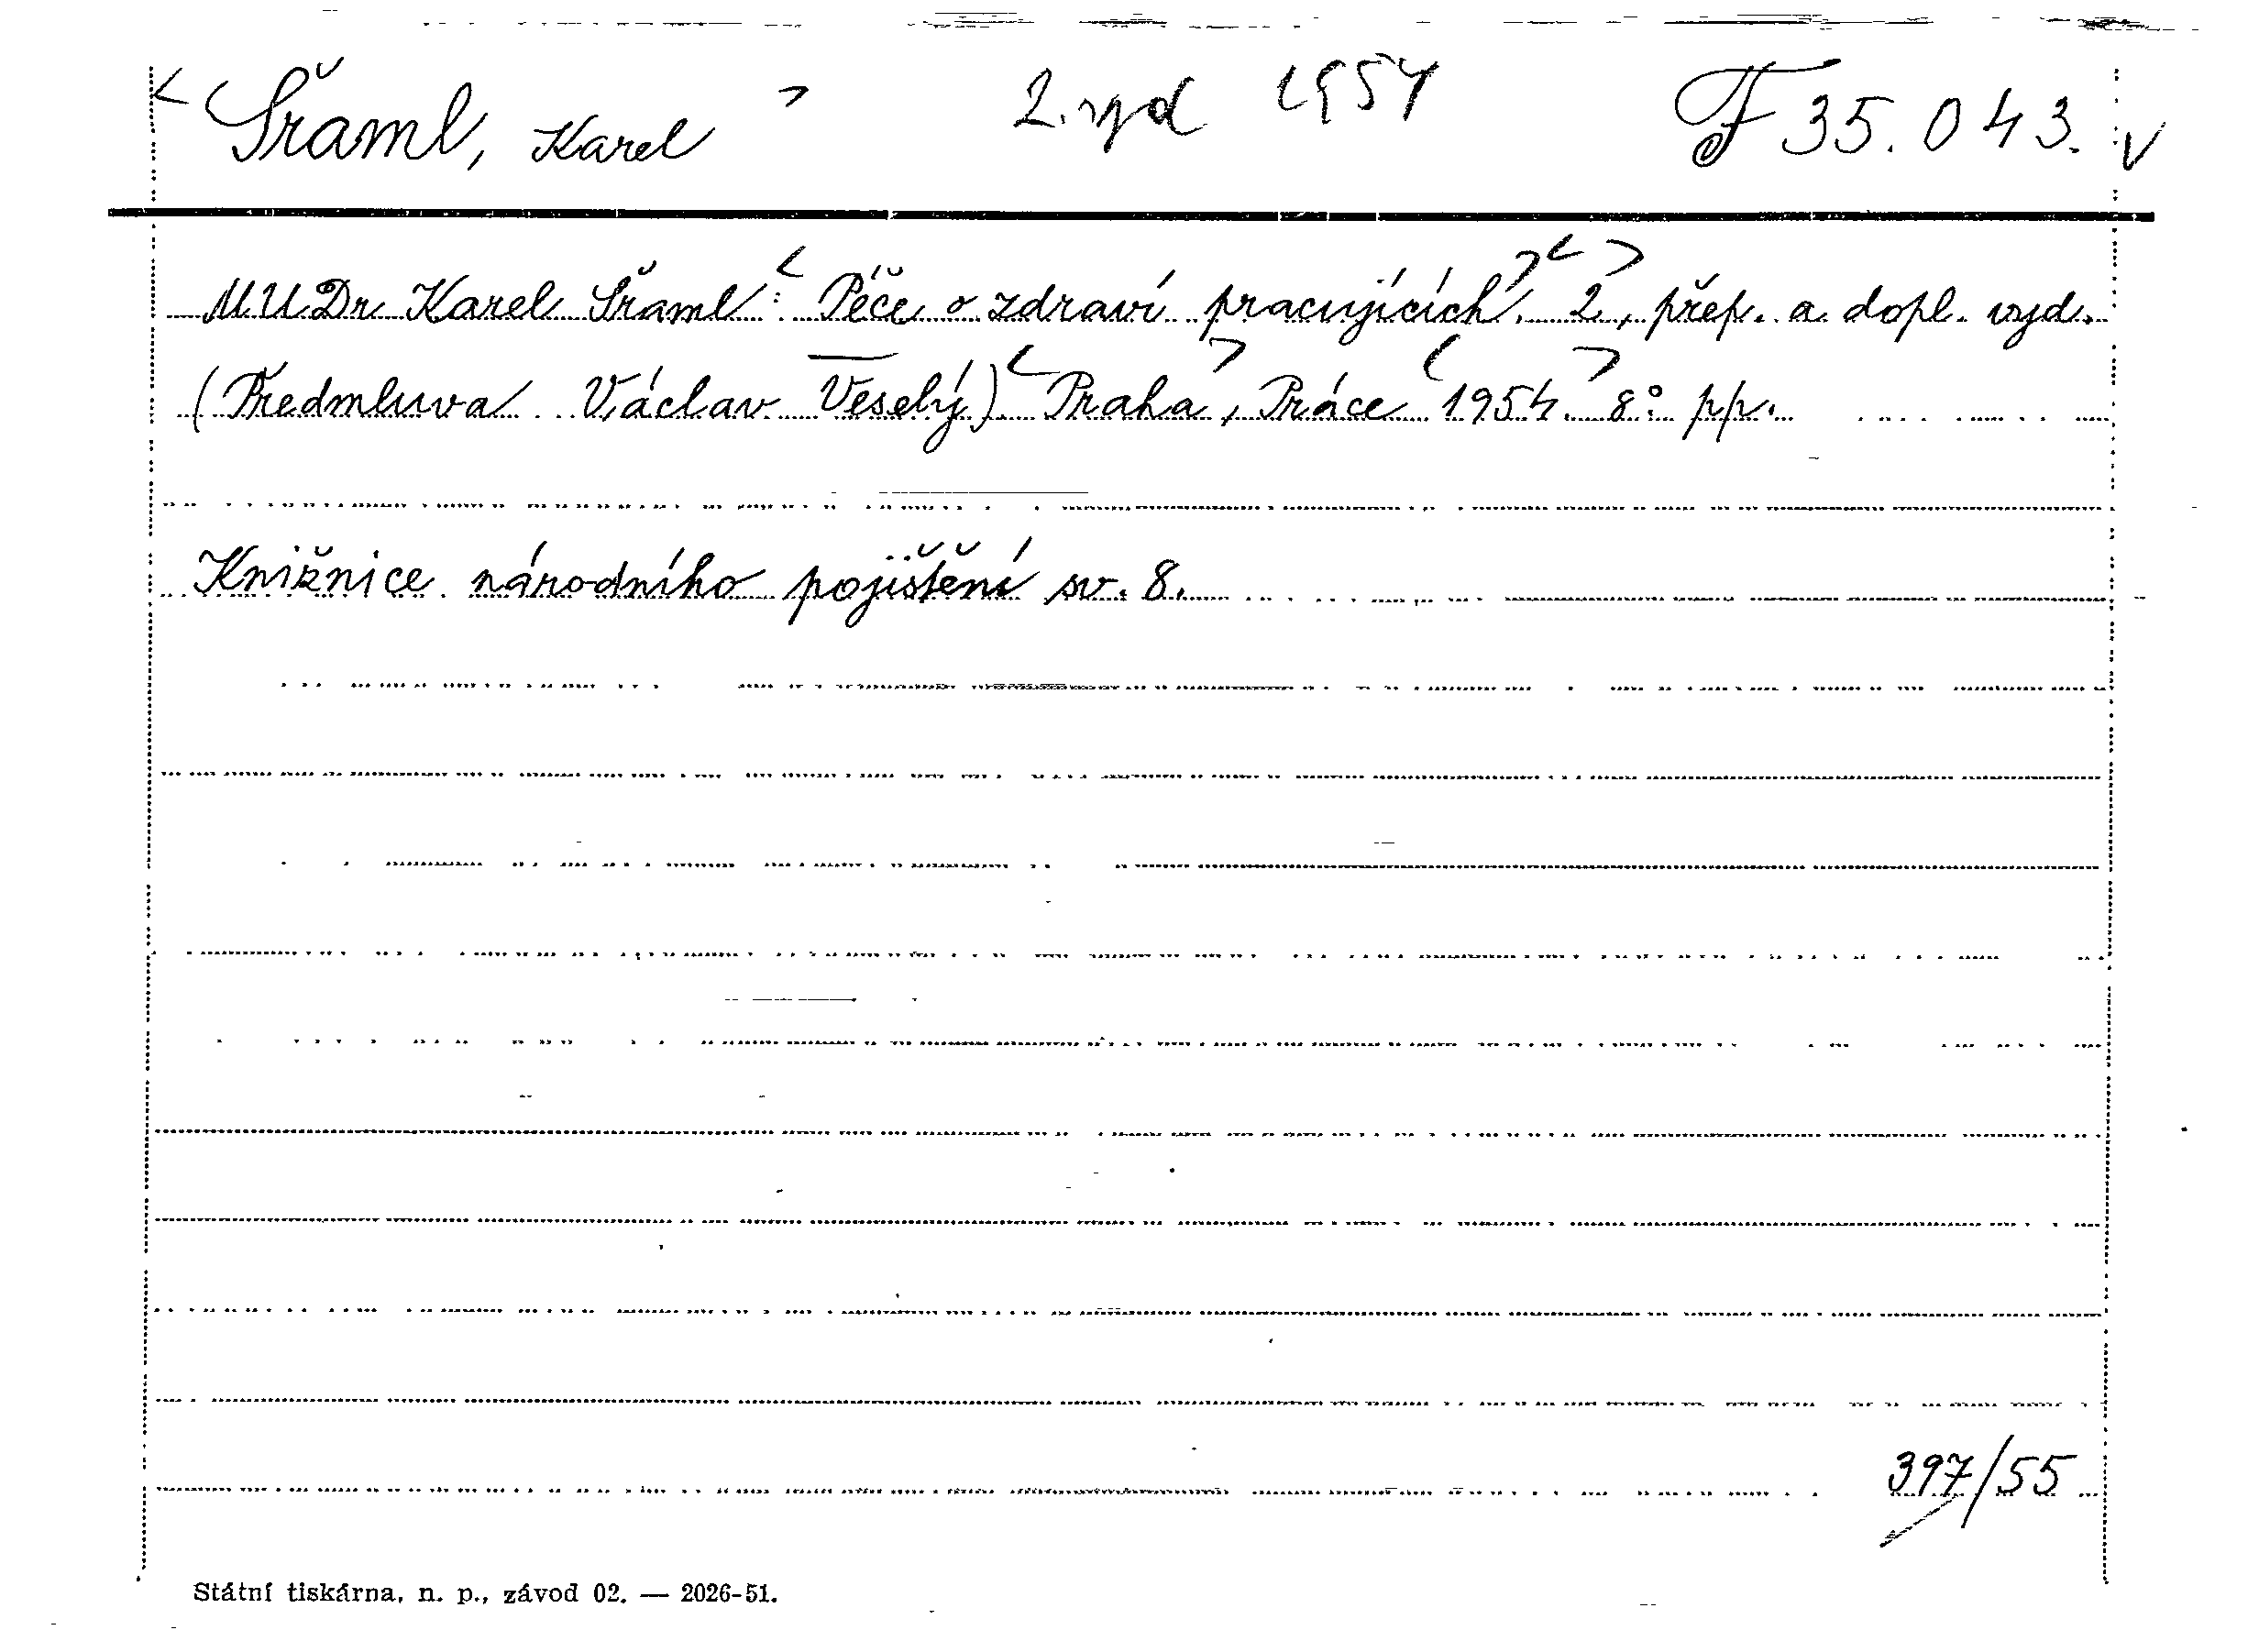 < Šraml, Karel > 2. vyd 1954 F 35.043. v
MUDr Karel Šraml: < Péče o zdraví pracujících. > < 2., > přep. a dopl. vyd.
(Předmluva Václav Veselý) < Praha >, Práce < 1954. > 8° pp.
Knižnice národního pojištění sv. 8.
397/55
Státní tiskárna, n. p., závod 02. — 2026-51.